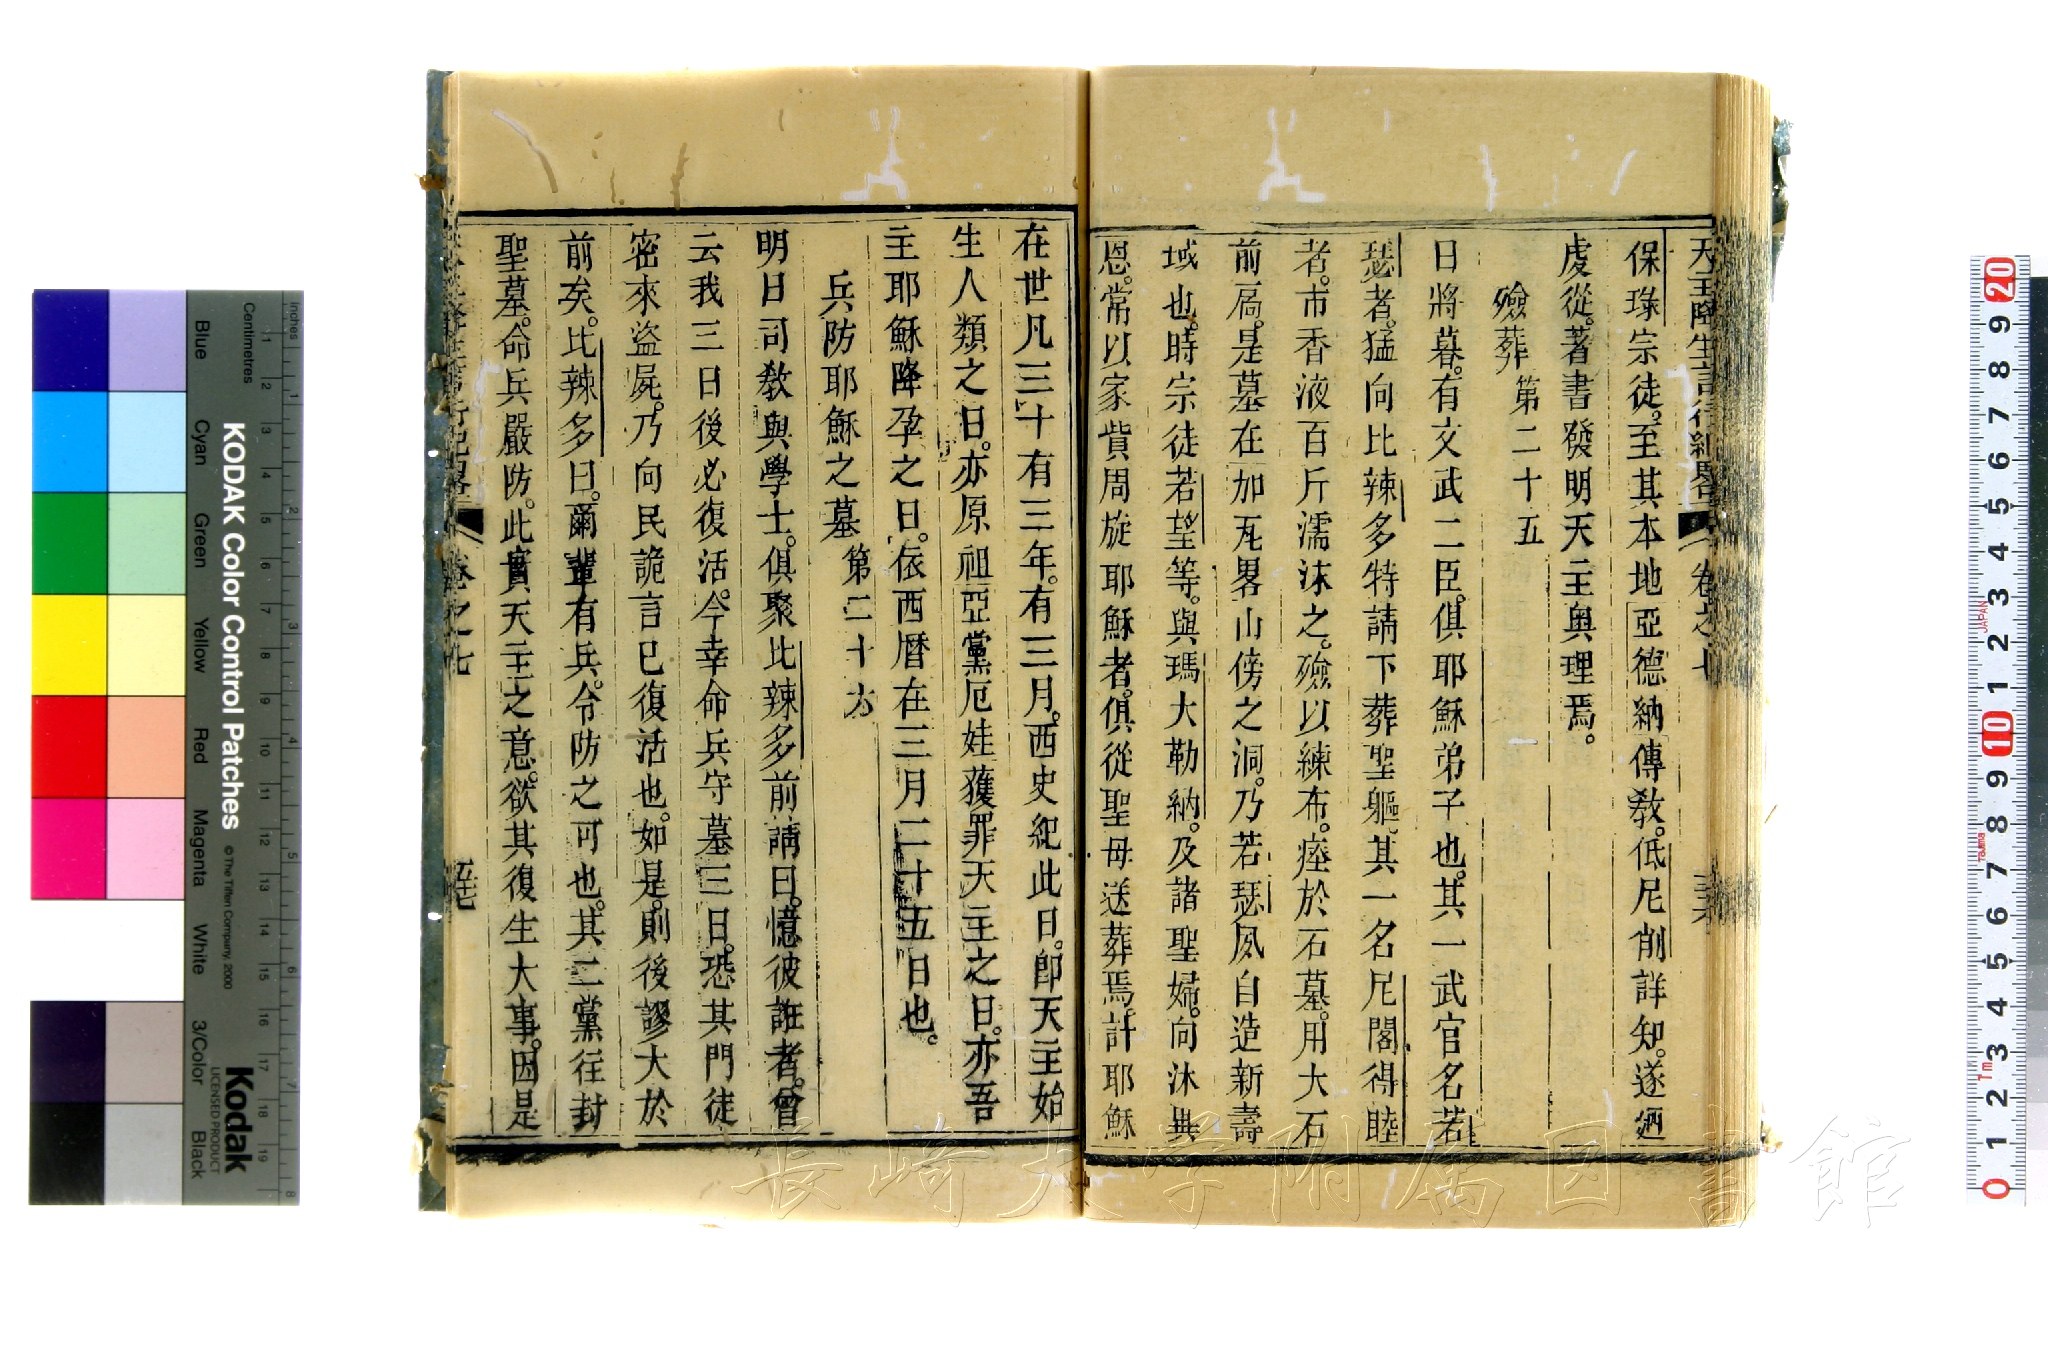 天主降生言行紀畧 卷之七
保琭宗徒。至其本地亞德納傳教。低尼削詳知。遂廼
虔從。著書發明天主奥理焉。
殮葬第二十五
日將暮。有文武二臣。俱耶穌弟子也。其一武官名若
瑟者。猛向比辣多特請下葬聖軀。其一名尼閣得睦
者。市香液百斤濡沫之。殮以練布。瘞於石墓。用大石
前扃。是墓在加瓦畧山傍之洞。乃若瑟夙自造新壽
域也。時宗徒若望等。與瑪大勒納。及諸聖婦。向沐其
恩。常以家貲周旋耶穌者。俱從聖母送葬焉。計耶穌
在世凡三十有三年。有三月。西史紀此日。卽天主始
生人類之日。亦原祖亞黨厄娃獲罪天主之日。亦吾
主耶穌降孕之日。依西曆在三月二十五日也。
兵防耶穌之墓第二十六
明日司教與學士。俱聚比辣多前請曰。憶彼誑者。曾
云我三日後必復活。今幸命兵守墓三日。恐其門徒
密來盜屍。乃向民詭言已復活也。如是。則後謬大於
前矣。比辣多曰。爾輩有兵。令防之可也。其二黨往封
聖墓。命兵嚴防。此實天主之意。欲其復生大事。因是
卷之七
Inches
Centimetres
Blue
Cyan
Green
Yellow
Red
Magenta
White
3/Color
Black
KODAK Color Control Patches
© The Tiffen Company, 2000
Kodak
LICENSED PRODUCT
長崎大学附属図書館
JAPAN
Tajima